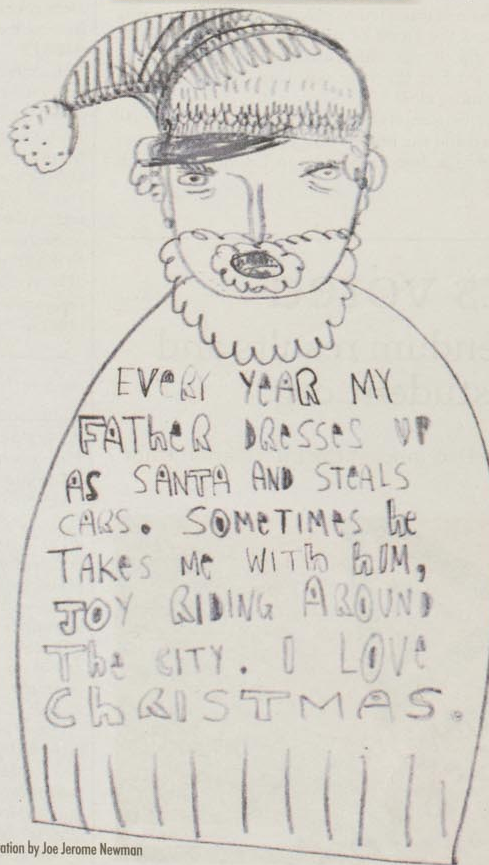 EVERY YEAR MY
FATHER DRESSES UP
AS SANTA AND STEALS
CARS. SOMETIMES he
TAKES Me WITh hIM,
JOY RIDING AROUND
The CITY. I LOVe
ChRISTMAS.
ation by Joe Jerome Newman